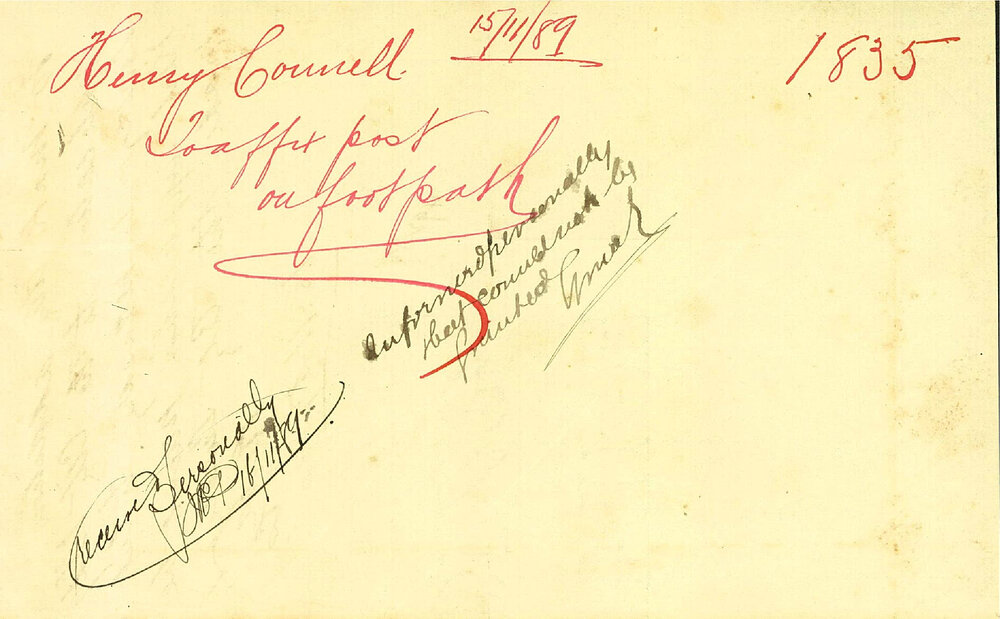 Henry Connell
15/11/89
1835
To affix post
on footpath
Informed personally
that could not be
granted
Personally
16/11/89